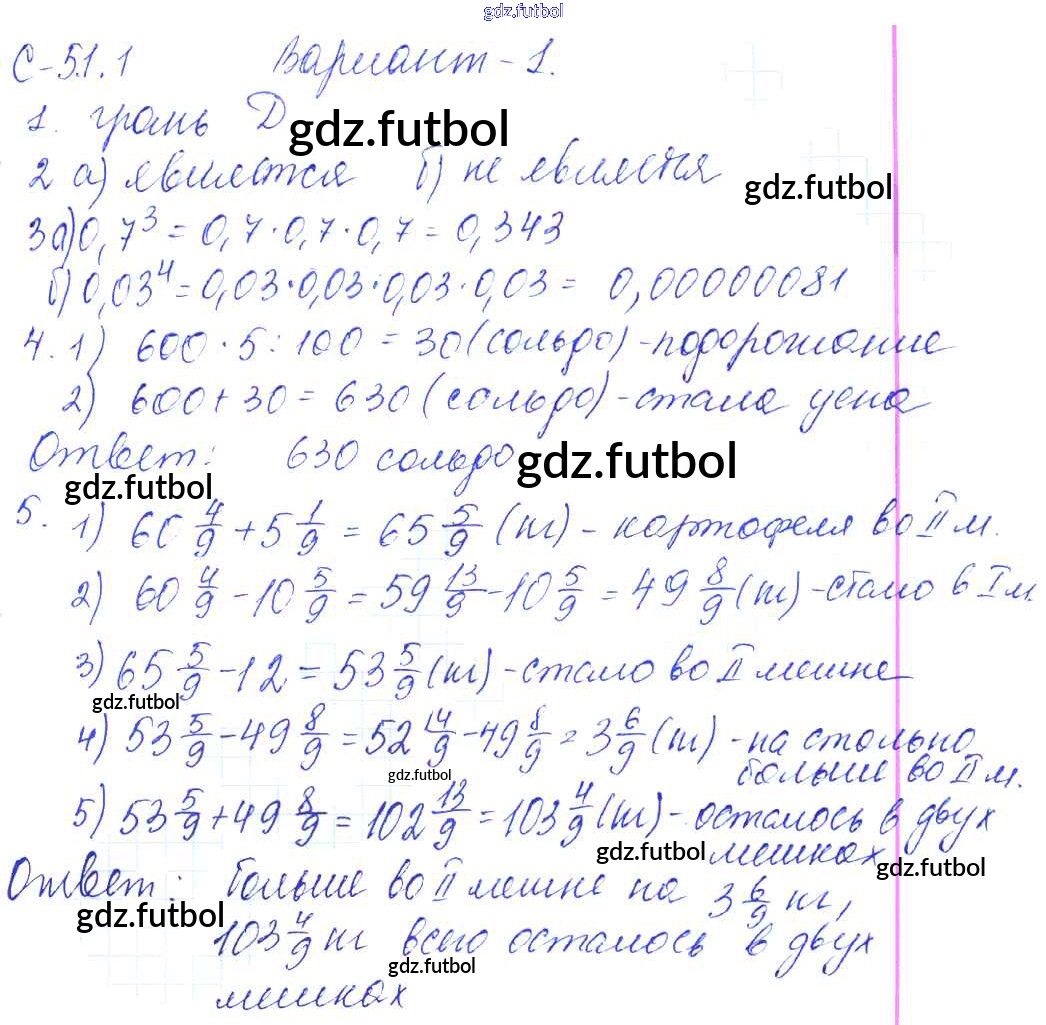 gdz.futbol
С-51.1 Вариант-1.
1. грань D gdz.futbol
2 а) является б) не является gdz.futbol
3а) 0,7³ = 0,7·0,7·0,7 = 0,343
б) 0,03⁴ = 0,03·0,03·0,03·0,03 = 0,00000081
4. 1) 600·5:100 = 30 (сольдо)-подорожание
2) 600+30 = 630 (сольдо)-стала цена
Ответ: 630 сольдо gdz.futbol
gdz.futbol
5. 1) 60 4/9 + 5 1/9 = 65 5/9 (кг) - картофеля во II м.
2) 60 4/9 - 10 5/9 = 59 13/9 - 10 5/9 = 49 8/9 (кг) - стало в I м.
3) 65 5/9 - 12 = 53 5/9 (кг) - стало во II мешке
gdz.futbol
4) 53 5/9 - 49 8/9 = 52 14/9 - 49 8/9 = 3 6/9 (кг) - на столько
gdz.futbol больше во II м.
5) 53 5/9 + 49 8/9 = 102 13/9 = 103 4/9 (кг) - осталось в двух
gdz.futbol мешках gdz.futbol
Ответ: больше во II мешке на 3 6/9 кг,
gdz.futbol
103 4/9 кг всего осталось в двух
gdz.futbol
мешках